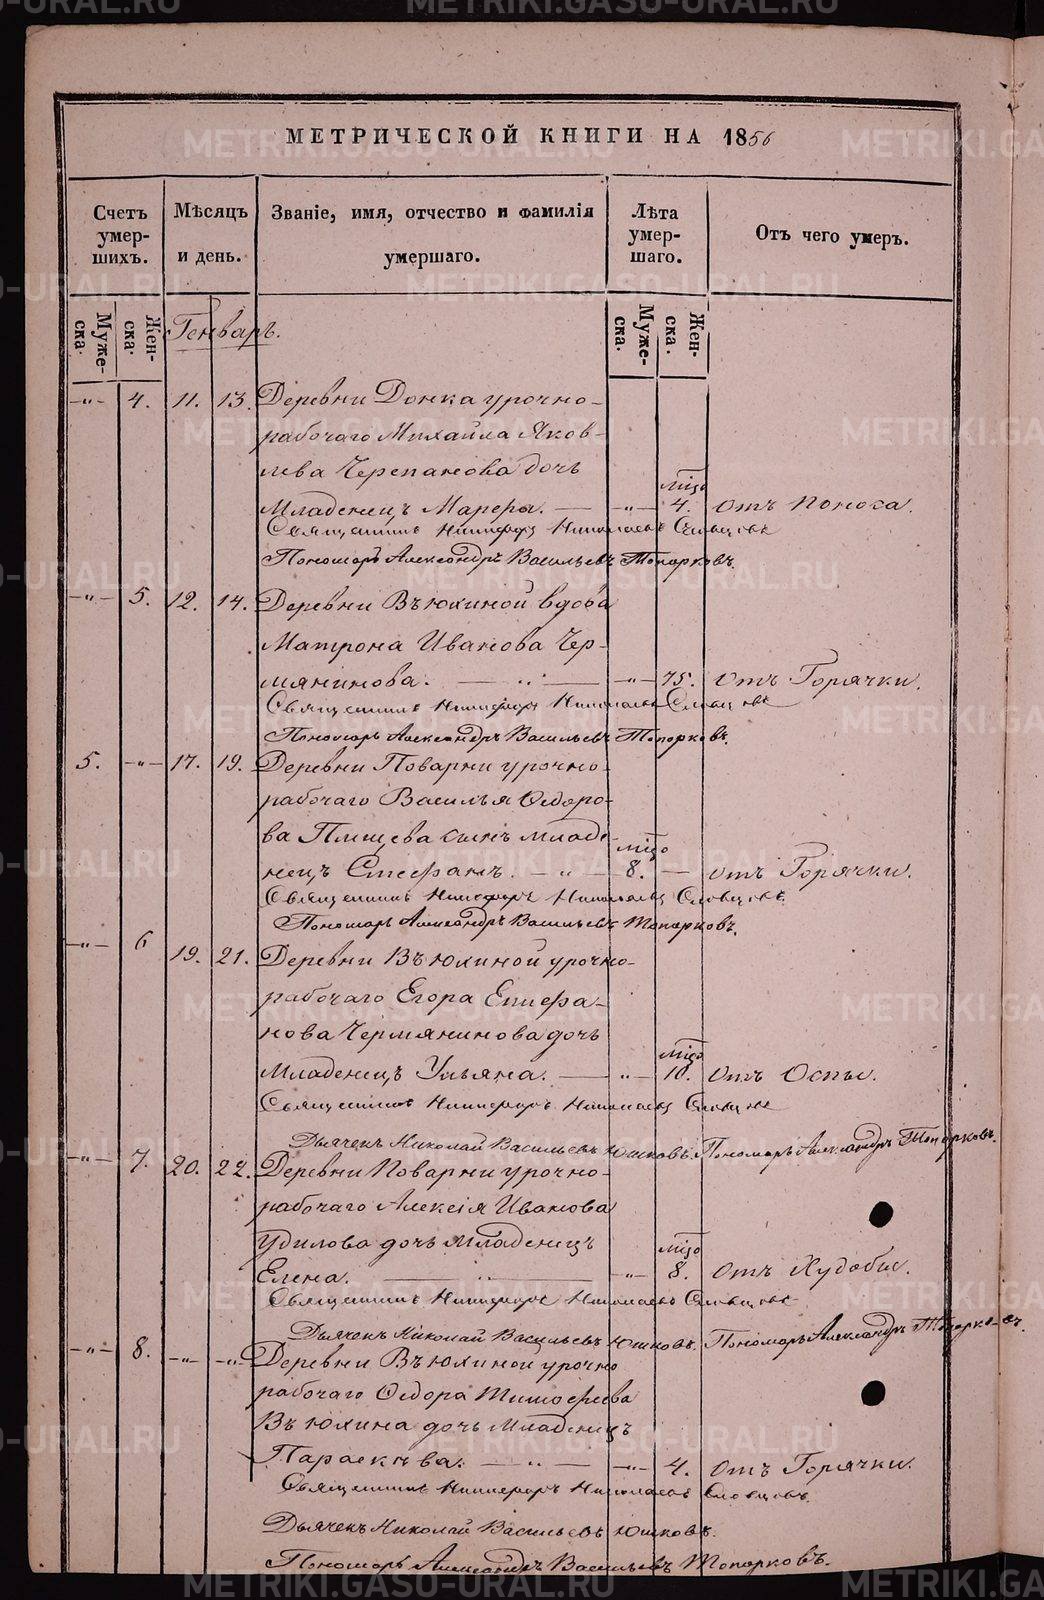 МЕТРИЧЕСКОЙ КНИГИ НА 1856
Счетъ умер-шихъ.
Мѣсяцъ и день.
Званіе, имя, отчество и фамилія умершаго.
Лѣта умер-шаго.
Отъ чего умеръ.
Муже-ска.
Жен-ска.
Генварь.
Муже-ска.
Жен-ска.
-"- 4. 11. 13. Деревни Донка урочно-
рабочаго Михаила Яков-
лева Черепанова дочь
мцо
Младенецъ Марѳра. — -"- 4. отъ Поноса.
Священникъ Никифоръ Николаевъ Словцовъ
Пономарь Александръ Васильевъ Топорковъ.
-"- 5. 12. 14. Деревни Вьюхиной вдова
Матрона Иванова Чер-
мянинова. — " — -"- 75. отъ Горячки.
Священникъ Никифоръ Николаевъ Словцовъ
Пономарь Александръ Васильевъ Топорковъ.
5. -"- 17. 19. Деревни Поварни урочно-
рабочаго Василья Ѳедоро-
ва Пищева сынъ младе-
мцо
нецъ Стефанъ. — " — 8. — отъ Горячки.
Священникъ Никифоръ Николаевъ Словцовъ
Пономарь Александръ Васильевъ Топорковъ.
-"- 6 19. 21. Деревни Вьюхиной урочно-
рабочаго Егора Епифа-
нова Чермянинова дочь
мцо
Младенецъ Ульяна. — -"- 10. отъ Оспы.
Священникъ Никифоръ Николаевъ Словцовъ
Дьячекъ Николай Васильевъ Юшковъ. Пономарь Александръ Топорковъ.
-"- 7. 20. 22. Деревни Поварни урочно-
рабочаго Алексія Иванова
Удилова дочь Младенецъ
мцо
Елена. — " — -"- 8. отъ Худобы.
Священникъ Никифоръ Николаевъ Словцовъ
Дьячекъ Николай Васильевъ Юшковъ. Пономарь Александръ Топорковъ.
-"- 8. -"- -"- Деревни Вьюхиной урочно
рабочаго Ѳедора Тимофеева
Вьюхина дочь Младенецъ
Параскѣва. — " — -"- 4. отъ Горячки.
Священникъ Никифоръ Николаевъ Словцовъ.
Дьячекъ Николай Васильевъ Юшковъ.
Пономарь Александръ Васильевъ Топорковъ.
METRIKI.GASO-URAL.RU